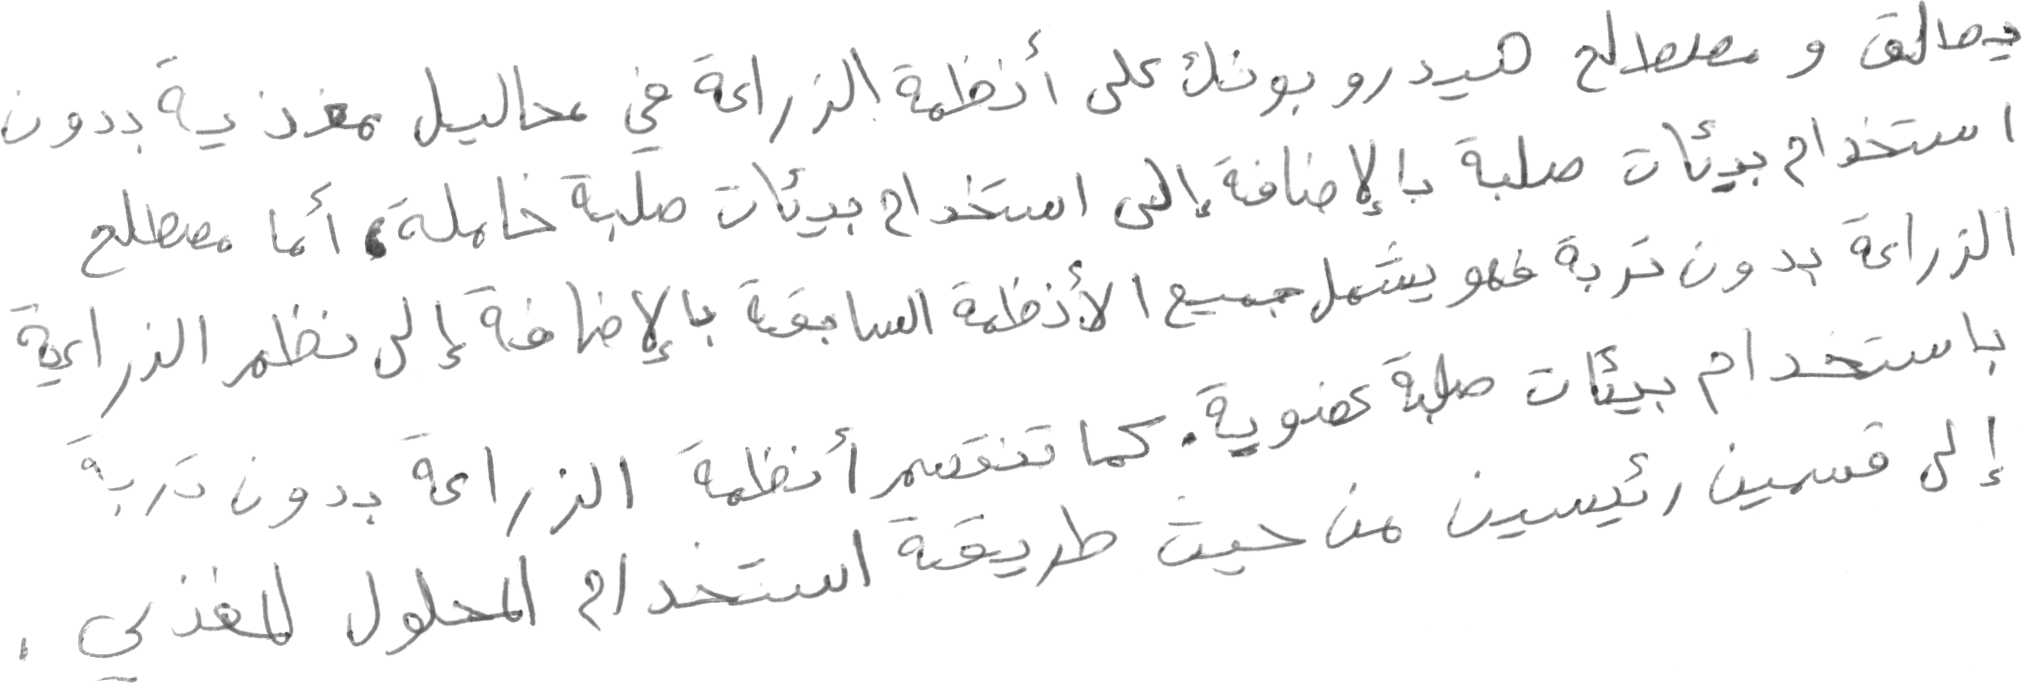 يطلق و مصطلح هيدروبونك على أنظمة الزراعة في محاليل مغذية بدون
استخدام بيئات صلبة بالإضافة إلى استخدام بيئات صلبة خاملة، أما مصطلح
الزراعة بدون تربة فهو يشمل جميع الأنظمة السابقة بالإضافة إلى نظم الزراعية
باستخدام بيئات صلبة عضوية. كما تنقسم أنظمة الزراعة بدون تربة
إلى قسمين رئيسين من حيث طريقة استخدام المحلول المغذي .